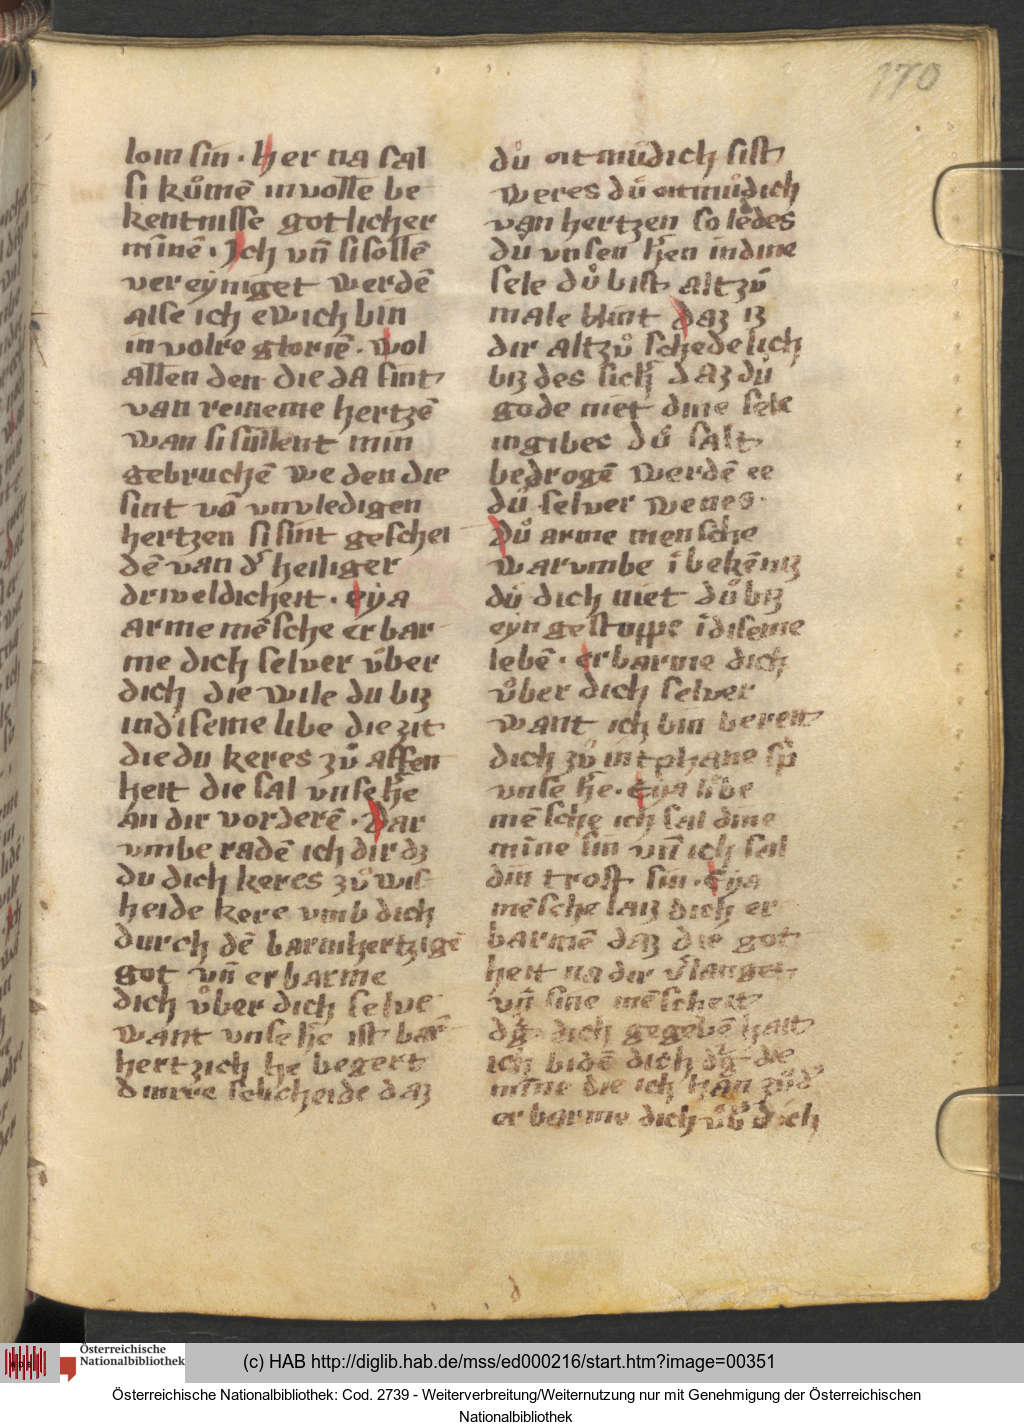 170
loin sin · her na sal
si kůmē in volle be
kentnisse gotlicher
minnē · Ich vn̄ si sollē
vereyniget werdē
alse ich ewich bin
in volre gloriē · wol
allen den die da sint
van reineme hertzē
wan si sullent min
gebruchē we den die
sint vō vnvledigen
hertzen si sint geschei
dē van d' heiliger
driveldicheit · eya
arme mēsche erbar
me dich selver v̊ber
dich die wile du biz
in diseme libe die zit
die du keres zů affen
heit die sal vnse h̄e
an dir vorderē · Dar
vmbe radē ich dir dz
du dich keres zů wis
heide kere vmb dich
durch dē barmhertzigē
got vn̄ erbarme
dich v̊ber dich selve
want vnse h̄e ist bar
hertzich he begert
dinre selicheide daz
dů otmůdich sist
weres dů otmůdich
van hertzen so lēdes
dů vnsen h̄en in dine
sele dů bist altzů
male blint daz iz
dir altzů schedelich
biz des sich' daz dů
gode niet dine sele
in gibes dů salt
bedrogē werdē ee
dů selver wenes ·
Dů arme mensche
warumbe ī bekēniz
dů dich niet dů biz
eyn gestuppe ī diseme
lebē · erbarme dich
v̊ber dich selver
want ich bin bereit
dich zů intphane sp̄
vnse h̄e · Eya libe
mēsche ich sal dine
mīne sin vn̄ ich sal
din trost sin · Eya
mēsche laiz dich er
barmē daz die got
heit na dir v'langet
vn̄ sine mēscheit
d' dich gegebē hait
ich bidē dich d' die
mīne die ich han zů d'
erbarme dich v̊b' dich
(c) HAB http://diglib.hab.de/mss/ed000216/start.htm?image=00351
Österreichische
Nationalbibliothek
Österreichische Nationalbibliothek: Cod. 2739 - Weiterverbreitung/Weiternutzung nur mit Genehmigung der Österreichischen
Nationalbibliothek